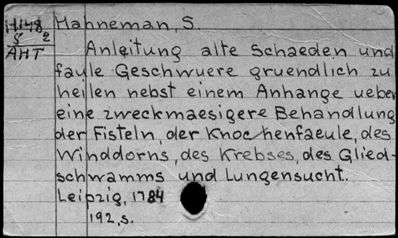 H148 Hahneman, S.
S 2
AHT Anleitung alte Schaeden und
faule Geschwuere gruendlich zu
heilen nebst einem Anhange ueber
eine zweckmaesigere Behandlung
der Fisteln, der Knochenfaeule, des
Winddorns, des Krebses, des Glied-
schwamms und Lungensucht.
Leipzig, 1784
192, s.